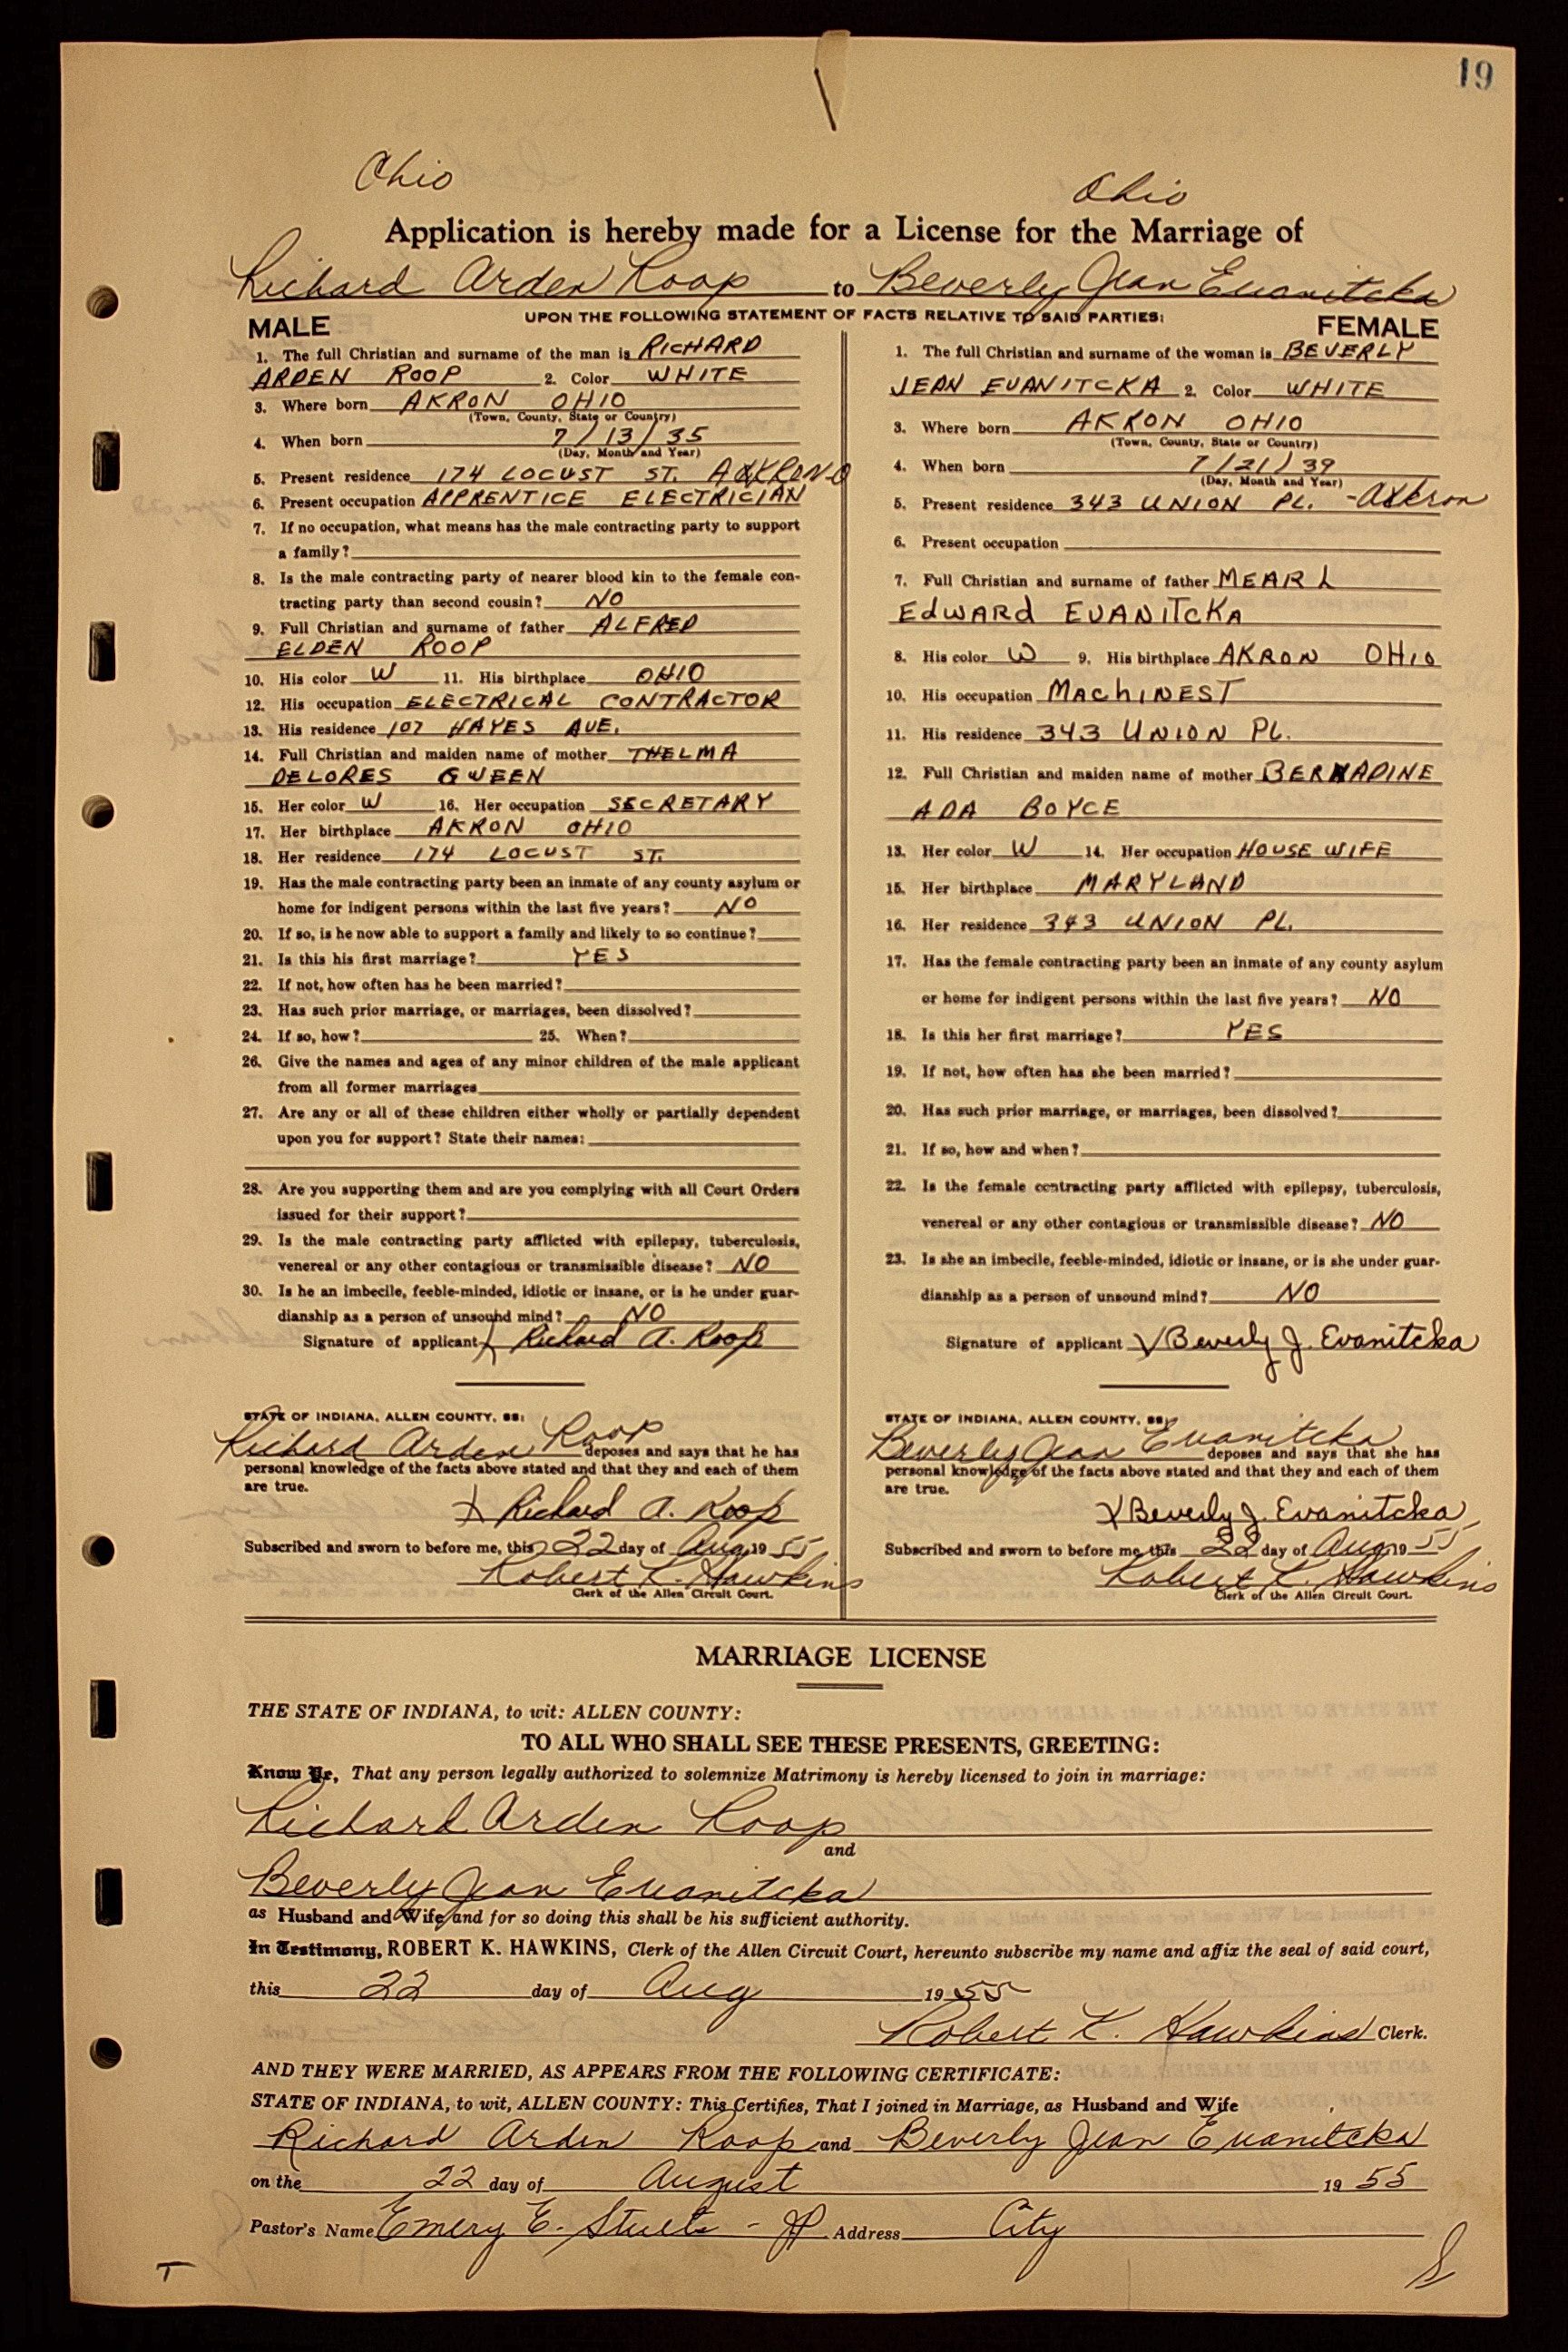 19
Ohio
Ohio
Application is hereby made for a License for the Marriage of
Richard Arden Roop to Beverly Jean Evanitcka
UPON THE FOLLOWING STATEMENT OF FACTS RELATIVE TO SAID PARTIES:
MALE
1. The full Christian and surname of the man is RICHARD
ARDEN ROOP 2. Color WHITE
3. Where born AKRON OHIO
(Town, County, State or Country)
4. When born 7/13/35
(Day, Month and Year)
5. Present residence 174 LOCUST ST. AKRON-O
6. Present occupation APPRENTICE ELECTRICIAN
7. If no occupation, what means has the male contracting party to support
a family?
8. Is the male contracting party of nearer blood kin to the female con-
tracting party than second cousin? NO
9. Full Christian and surname of father ALFRED
ELDEN ROOP
10. His color W 11. His birthplace OHIO
12. His occupation ELECTRICAL CONTRACTOR
13. His residence 107 HAYES AVE.
14. Full Christian and maiden name of mother THELMA
DELORES GWEEN
15. Her color W 16. Her occupation SECRETARY
17. Her birthplace AKRON OHIO
18. Her residence 174 LOCUST ST.
19. Has the male contracting party been an inmate of any county asylum or
home for indigent persons within the last five years? NO
20. If so, is he now able to support a family and likely to so continue?
21. Is this his first marriage? YES
22. If not, how often has he been married?
23. Has such prior marriage, or marriages, been dissolved?
24. If so, how? 25. When?
26. Give the names and ages of any minor children of the male applicant
from all former marriages
27. Are any or all of these children either wholly or partially dependent
upon you for support? State their names:
28. Are you supporting them and are you complying with all Court Orders
issued for their support?
29. Is the male contracting party afflicted with epilepsy, tuberculosis,
venereal or any other contagious or transmissible disease? NO
30. Is he an imbecile, feeble-minded, idiotic or insane, or is he under guar-
dianship as a person of unsound mind? NO
Signature of applicant X Richard A. Roop
STATE OF INDIANA, ALLEN COUNTY, SS:
Richard Arden Roop deposes and says that he has
personal knowledge of the facts above stated and that they and each of them
are true.
X Richard A. Roop
Subscribed and sworn to before me, this 22 day of Aug 1955
Robert K. Hawkins
Clerk of the Allen Circuit Court.
FEMALE
1. The full Christian and surname of the woman is BEVERLY
JEAN EVANITCKA 2. Color WHITE
3. Where born AKRON OHIO
(Town, County, State or Country)
4. When born 7/21/39
(Day, Month and Year)
5. Present residence 343 UNION PL. -Akron
6. Present occupation
7. Full Christian and surname of father MEARL
EdWARd EVANITCKA
8. His color W 9. His birthplace AKRON OHIO
10. His occupation MAChINEST
11. His residence 343 UNION PL.
12. Full Christian and maiden name of mother BERNADINE
ADA BOYCE
13. Her color W 14. Her occupation HOUSE WIFE
15. Her birthplace MARYLAND
16. Her residence 343 UNION PL.
17. Has the female contracting party been an inmate of any county asylum
or home for indigent persons within the last five years? NO
18. Is this her first marriage? YES
19. If not, how often has she been married?
20. Has such prior marriage, or marriages, been dissolved?
21. If so, how and when?
22. Is the female contracting party afflicted with epilepsy, tuberculosis,
venereal or any other contagious or transmissible disease? NO
23. Is she an imbecile, feeble-minded, idiotic or insane, or is she under guar-
dianship as a person of unsound mind? NO
Signature of applicant X Beverly J. Evanitcka
STATE OF INDIANA, ALLEN COUNTY, SS:
Beverly Jean Evanitcka deposes and says that she has
personal knowledge of the facts above stated and that they and each of them
are true.
X Beverly J. Evanitcka
Subscribed and sworn to before me, this 22 day of Aug 1955
Robert K. Hawkins
Clerk of the Allen Circuit Court.
MARRIAGE LICENSE
THE STATE OF INDIANA, to wit: ALLEN COUNTY:
TO ALL WHO SHALL SEE THESE PRESENTS, GREETING:
Know Ye, That any person legally authorized to solemnize Matrimony is hereby licensed to join in marriage:
Richard Arden Roop
and
Beverly Jean Evanitcka
as Husband and Wife and for so doing this shall be his sufficient authority.
In Testimony, ROBERT K. HAWKINS, Clerk of the Allen Circuit Court, hereunto subscribe my name and affix the seal of said court,
this 22 day of Aug 1955
Robert K. Hawkins Clerk.
AND THEY WERE MARRIED, AS APPEARS FROM THE FOLLOWING CERTIFICATE:
STATE OF INDIANA, to wit, ALLEN COUNTY: This Certifies, That I joined in Marriage, as Husband and Wife
Richard Arden Roop and Beverly Jean Evanitcka
on the 22 day of August 1955
Pastor's Name Emery E. - JP Address City
T